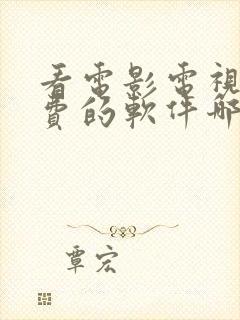 看電影電視
費的軟件哪
覃宏